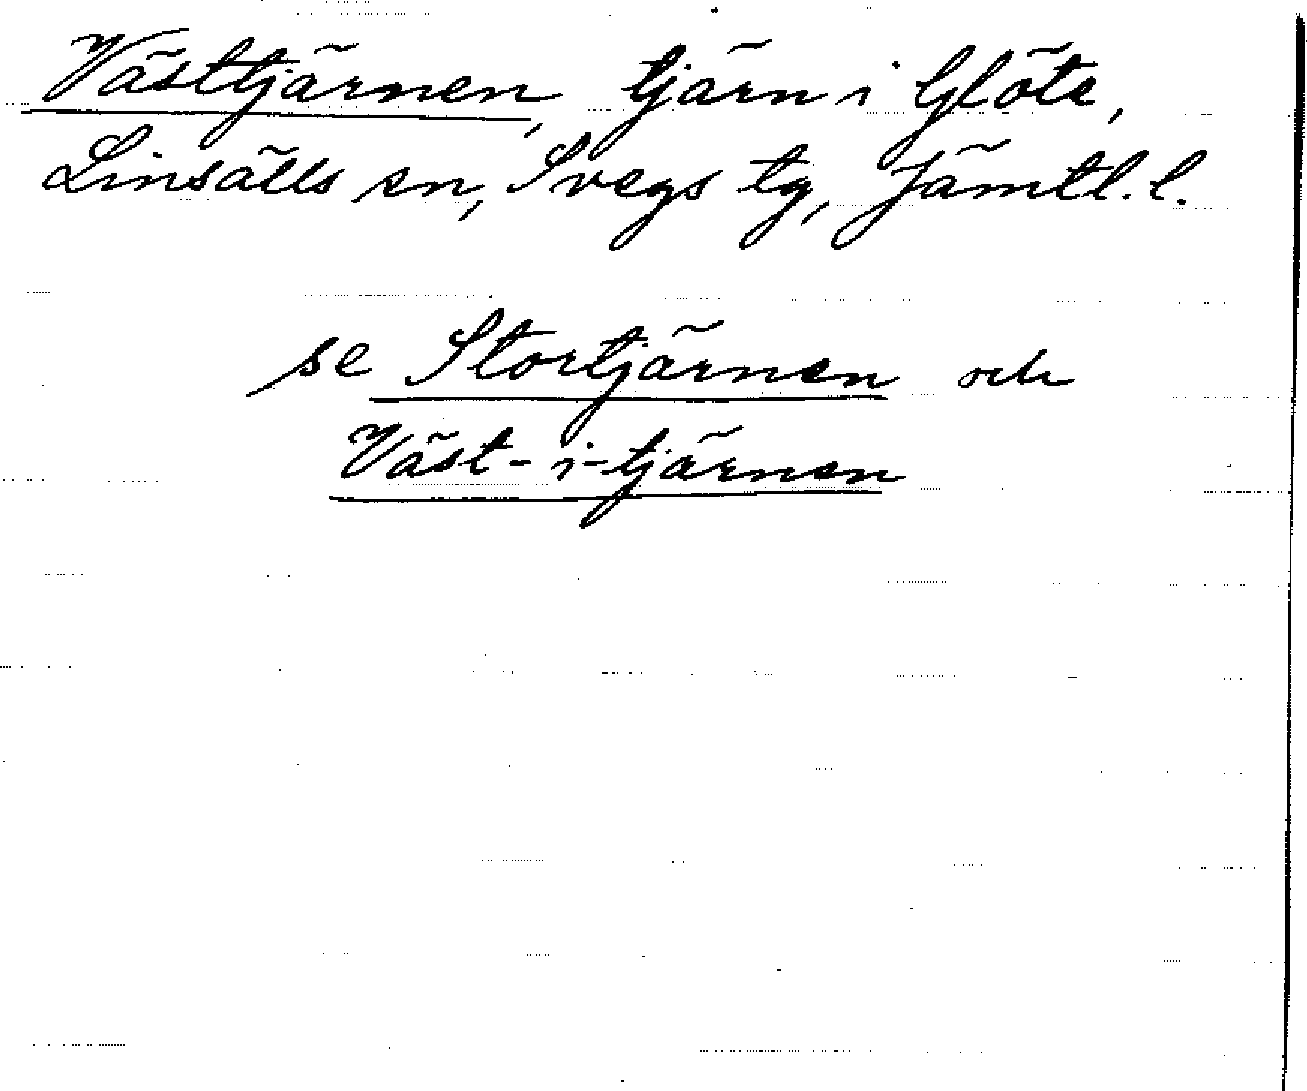 Västtjärnen, tjärn i Glöte,
Linsälls sn, Svegs tg, Jämtl. l.
se Stortjärnen och
Väst-i-tjärnen